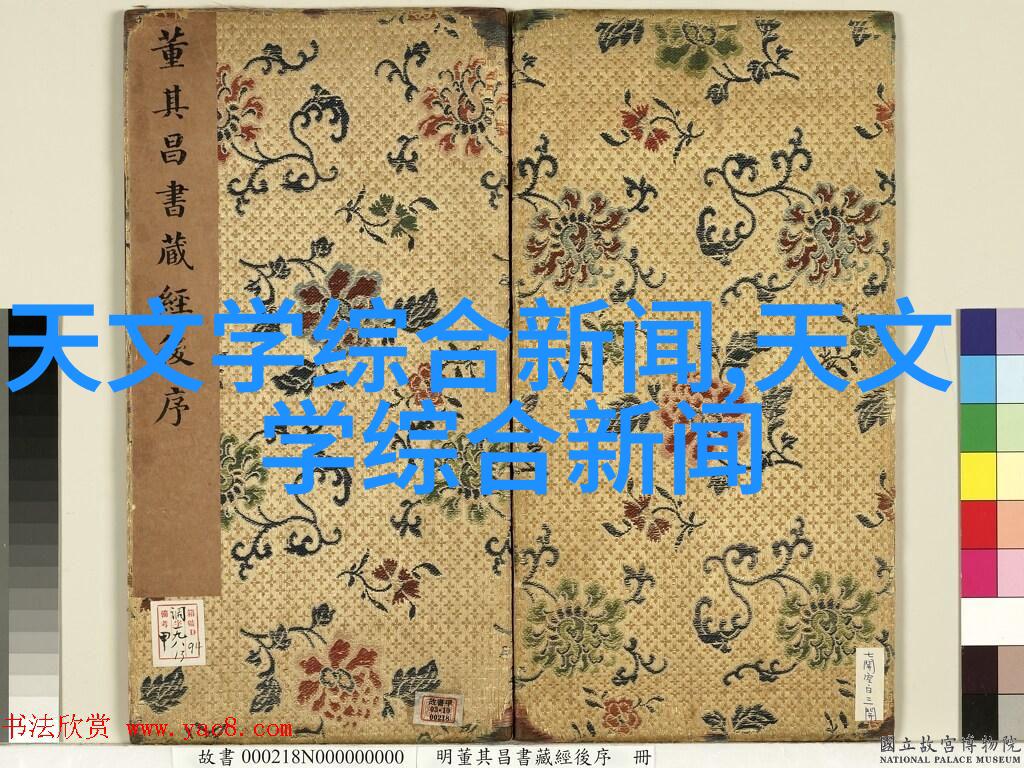 董其昌書藏經後序
天文学综合新闻,天文
学综合新闻
故書甲
03-10
00218
七開空白三開
书法欣赏 www.yac8.com
故書 000218N000000000 明董其昌書藏經後序 冊
國立故宮博物院
NATIONAL PALACE MUSEUM